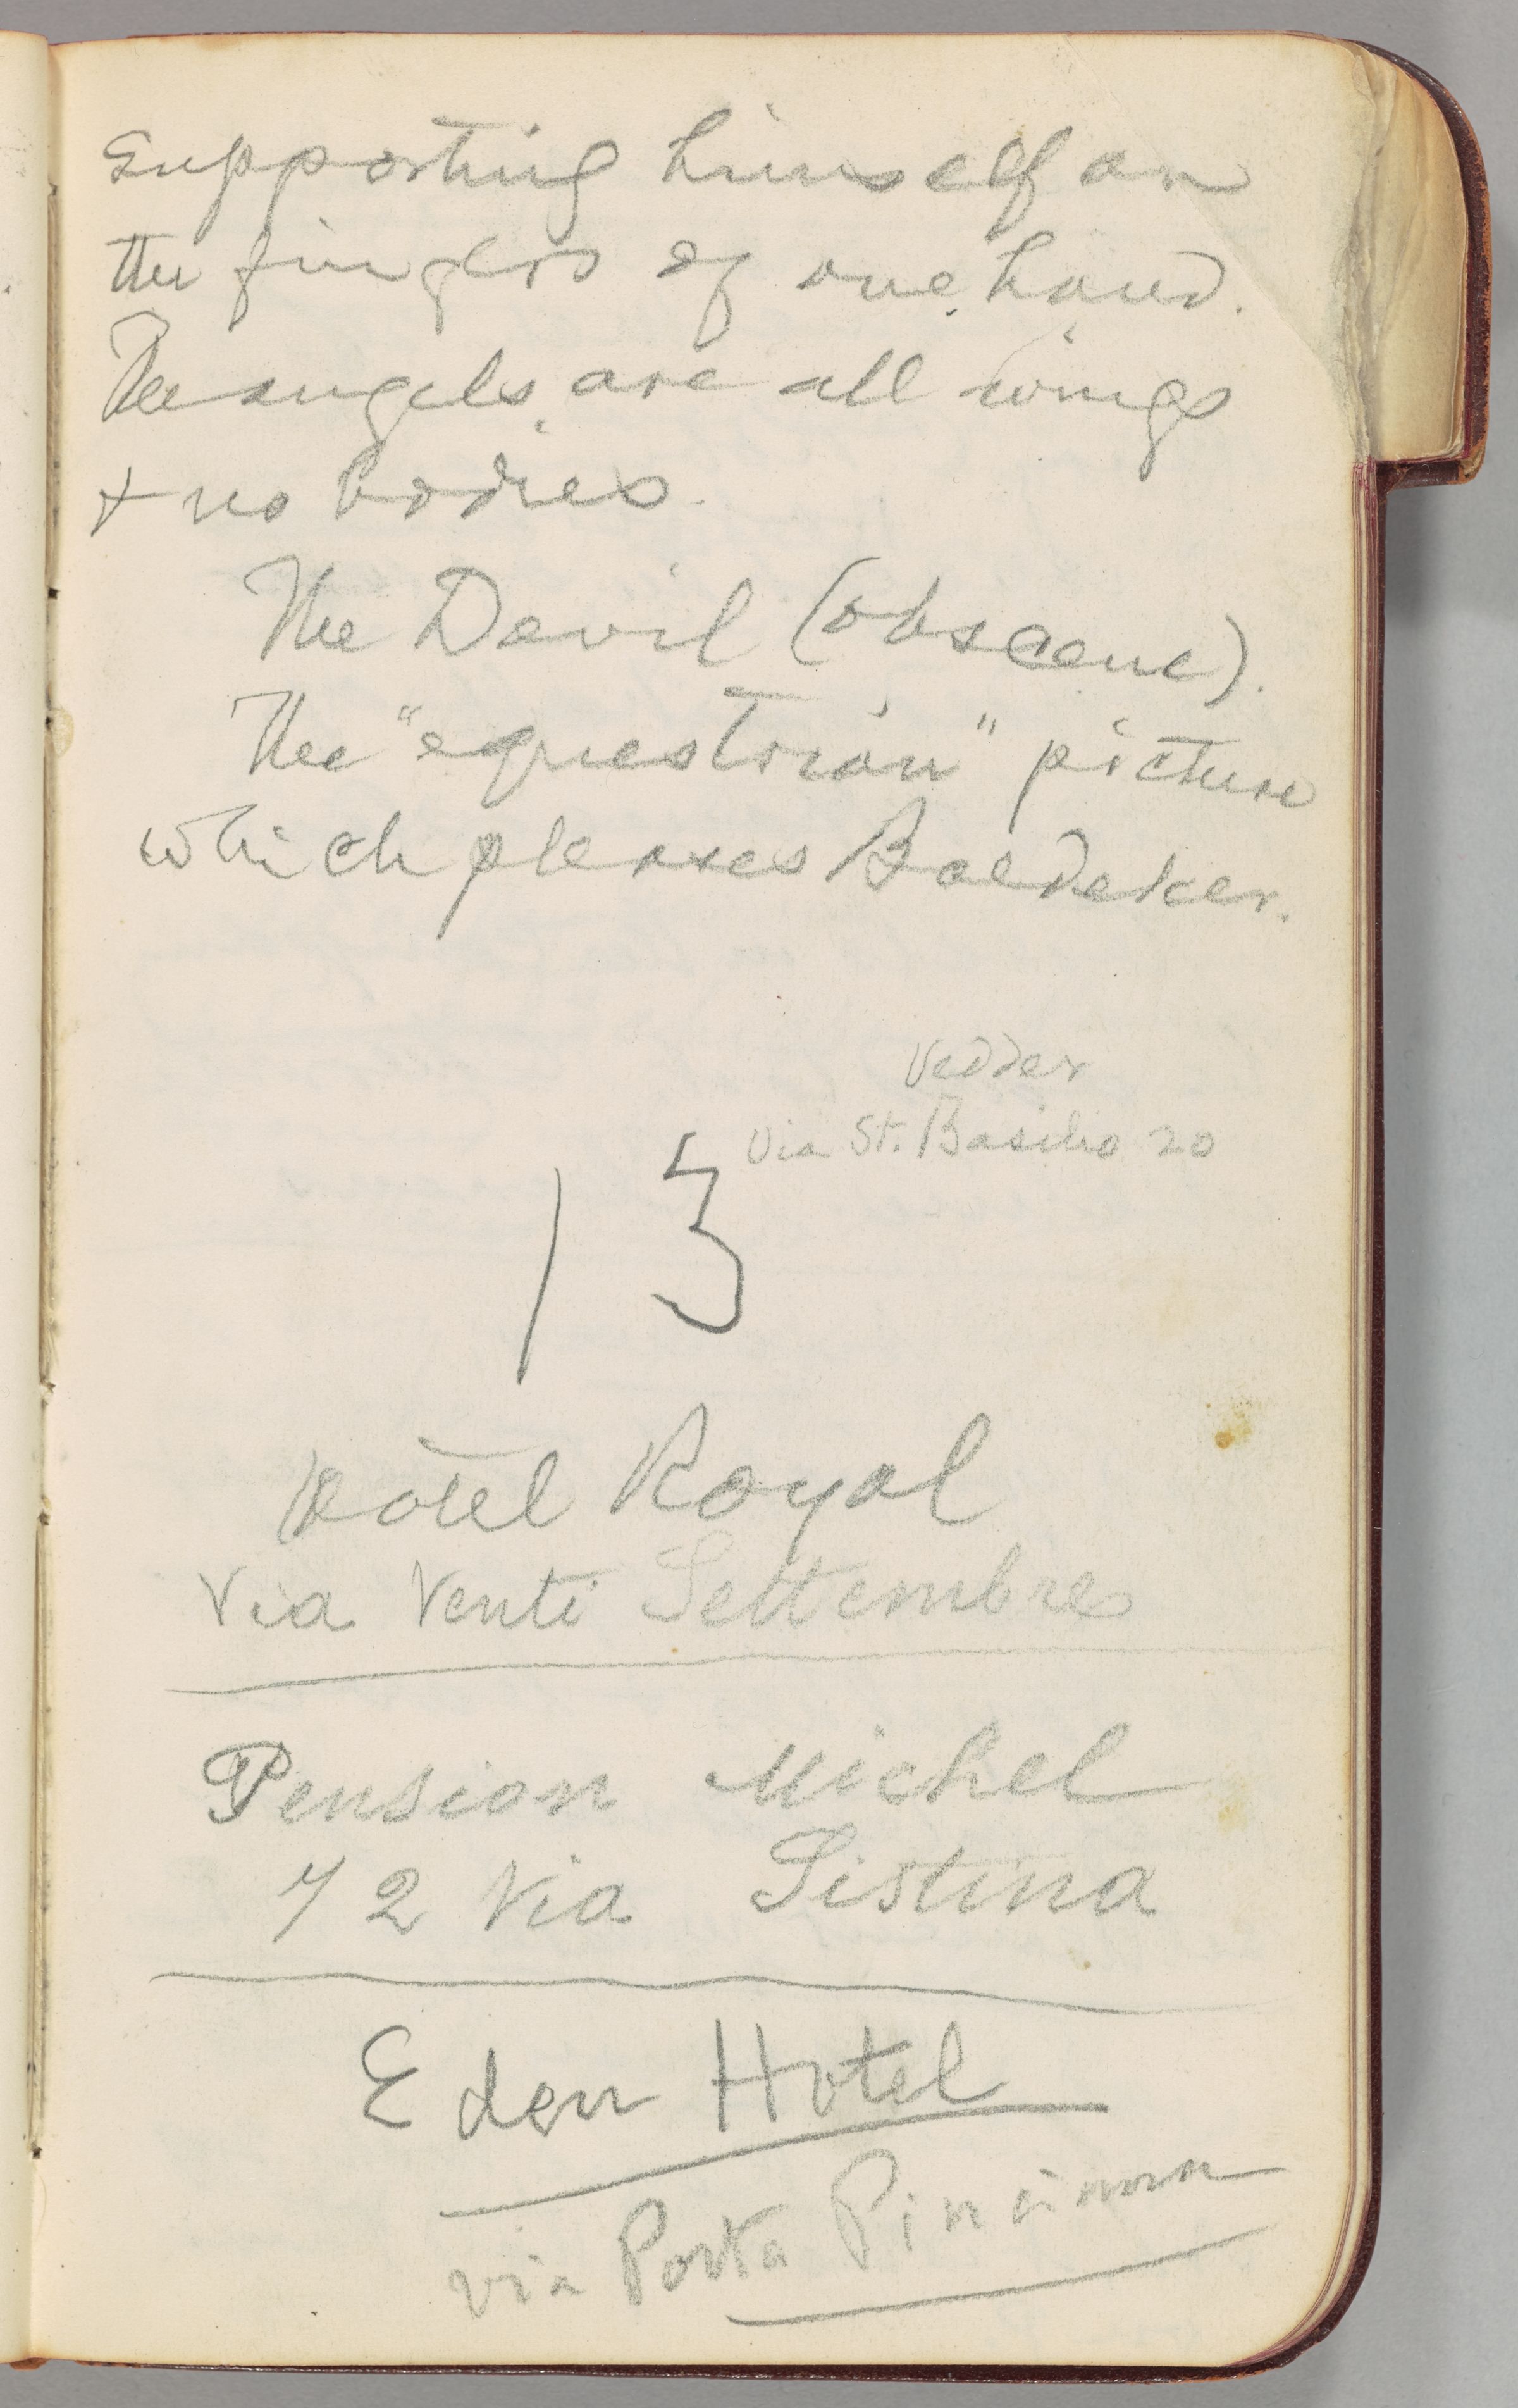 supporting himself on
the fingers of one hand.
The angels are all wings
+ no bodies.
The Devil (obscene).
The "equestrian" picture
which pleases Baedeker.
Vedder
Via St. Basilio 20
13
Hotel Royal
Via Venti Settembre
Pension Michel
72 Via Sistina
Eden Hotel
via Porta Pinciana